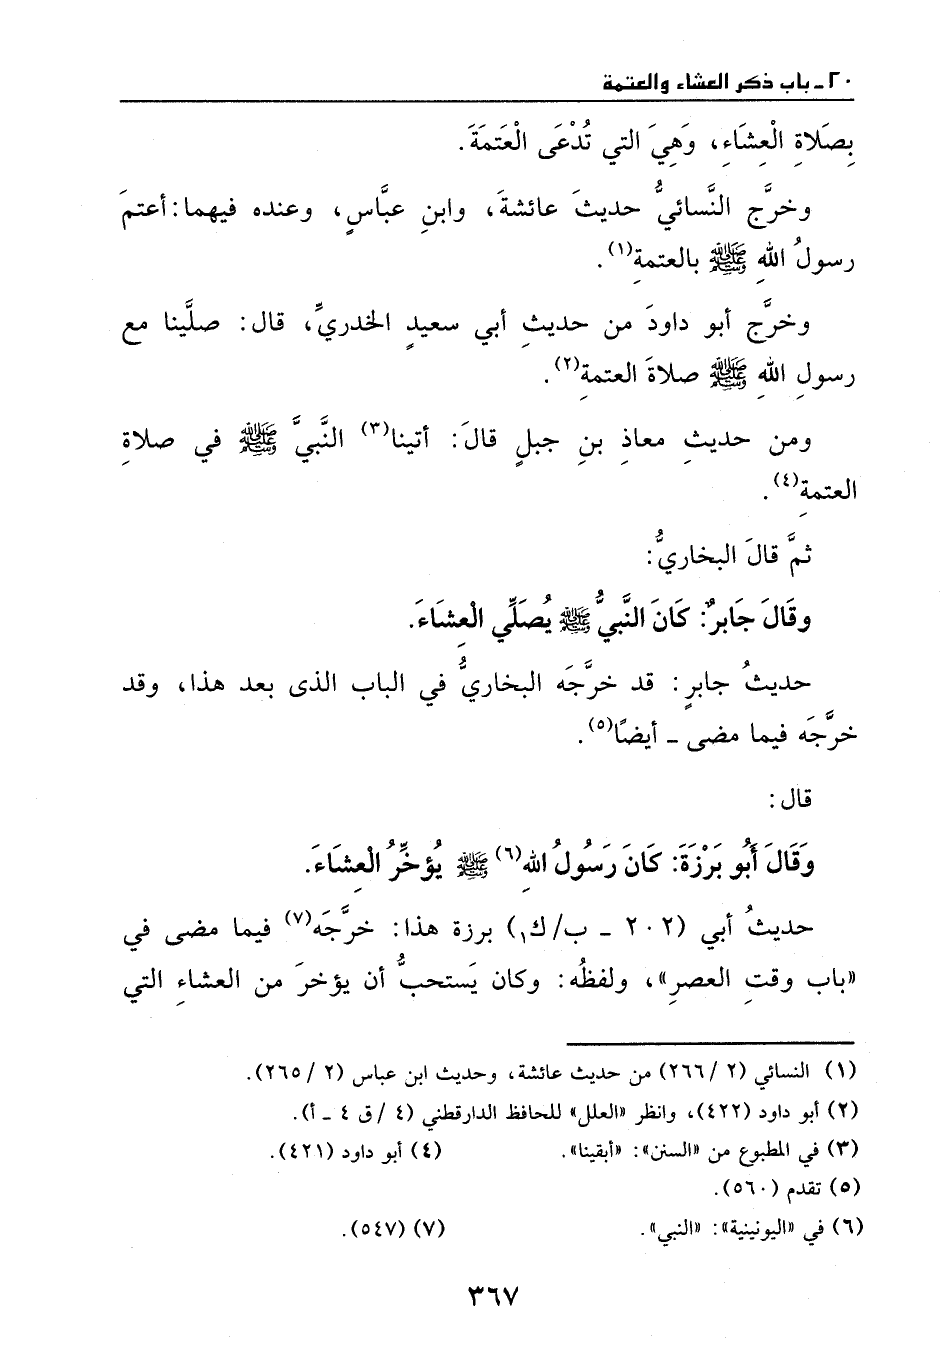 ٢٠ ـ باب ذكر العشاء والعتمة
بِصَلاةِ الْعِشَاءِ، وَهِيَ التي تُدْعَى الْعَتمَةَ.
وخرَّج النَّسائيُّ حديثَ عائشةَ، وابنِ عبَّاسٍ، وعنده فيهما: أعتمَ
رسولُ اللهِ ﷺ بالعتمةِ(١).
وخرَّج أبو داودَ من حديثِ أبي سعيدٍ الخدريِّ، قال: صلَّينا مع
رسولِ اللهِ ﷺ صلاةَ العتمةِ(٢).
ومن حديثِ معاذِ بنِ جبلٍ قالَ: أتينا(٣) النَّبيَّ ﷺ في صلاةِ
العتمةِ(٤).
ثمَّ قالَ البخاريُّ:
وقَالَ جَابرٌ: كَانَ النَّبيُّ ﷺ يُصَلِّي الْعِشَاءَ.
حديثُ جابرٍ: قد خرَّجَه البخاريُّ في الباب الذى بعد هذا، وقد
خرَّجَه فيما مضى ـ أيضًا(٥).
قال:
وَقَالَ أَبُو بَرْزَةَ: كَانَ رَسُولُ اللهِ(٦) ﷺ يُؤخِّرُ الْعِشَاءَ.
حديثُ أبي (٢٠٢ ـ ب/ك١) برزة هذا: خرَّجَه(٧) فيما مضى في
«باب وقتِ العصرِ»، ولفظُه: وكان يَستحبُّ أن يؤخرَ من العشاءِ التي
(١) النسائي (٢/ ٢٦٦) من حديث عائشة، وحديث ابن عباس (٢/ ٢٦٥).
(٢) أبو داود (٤٢٢)، وانظر «العلل» للحافظ الدارقطني (٤ /ق ٤ ـ أ).
(٣) في المطبوع من «السنن»: «أبقينا». (٤) أبو داود (٤٢١).
(٥) تقدم (٥٦٠).
(٦) في «اليونينية»: «النبي». (٧) (٥٤٧).
٣٦٧